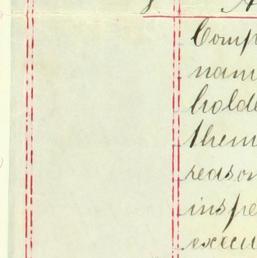 Comp
nam
holde
them
reason
inspe
execu